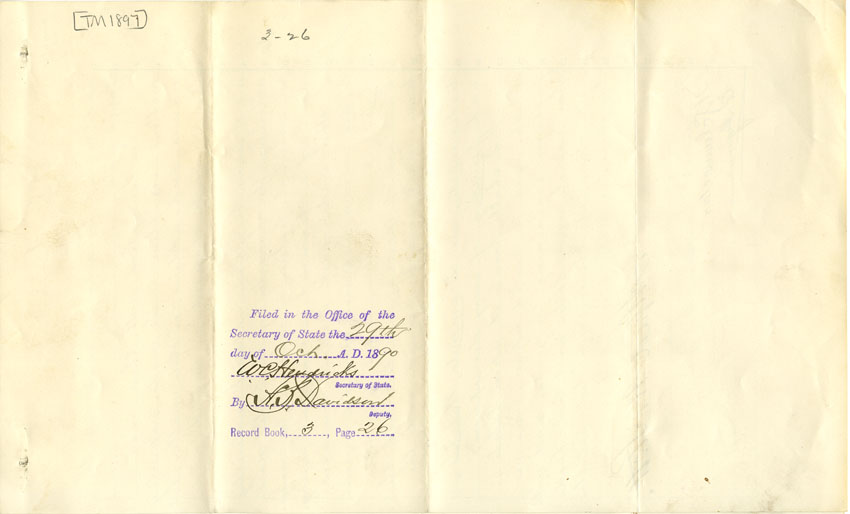 [TM1897]
3-26
Filed in the Office of the
Secretary of State the 29th
day of Oct, A. D. 1890
E C Hendricks
Secretary of State.
By Davidson
Deputy.
Record Book, 3, Page 26